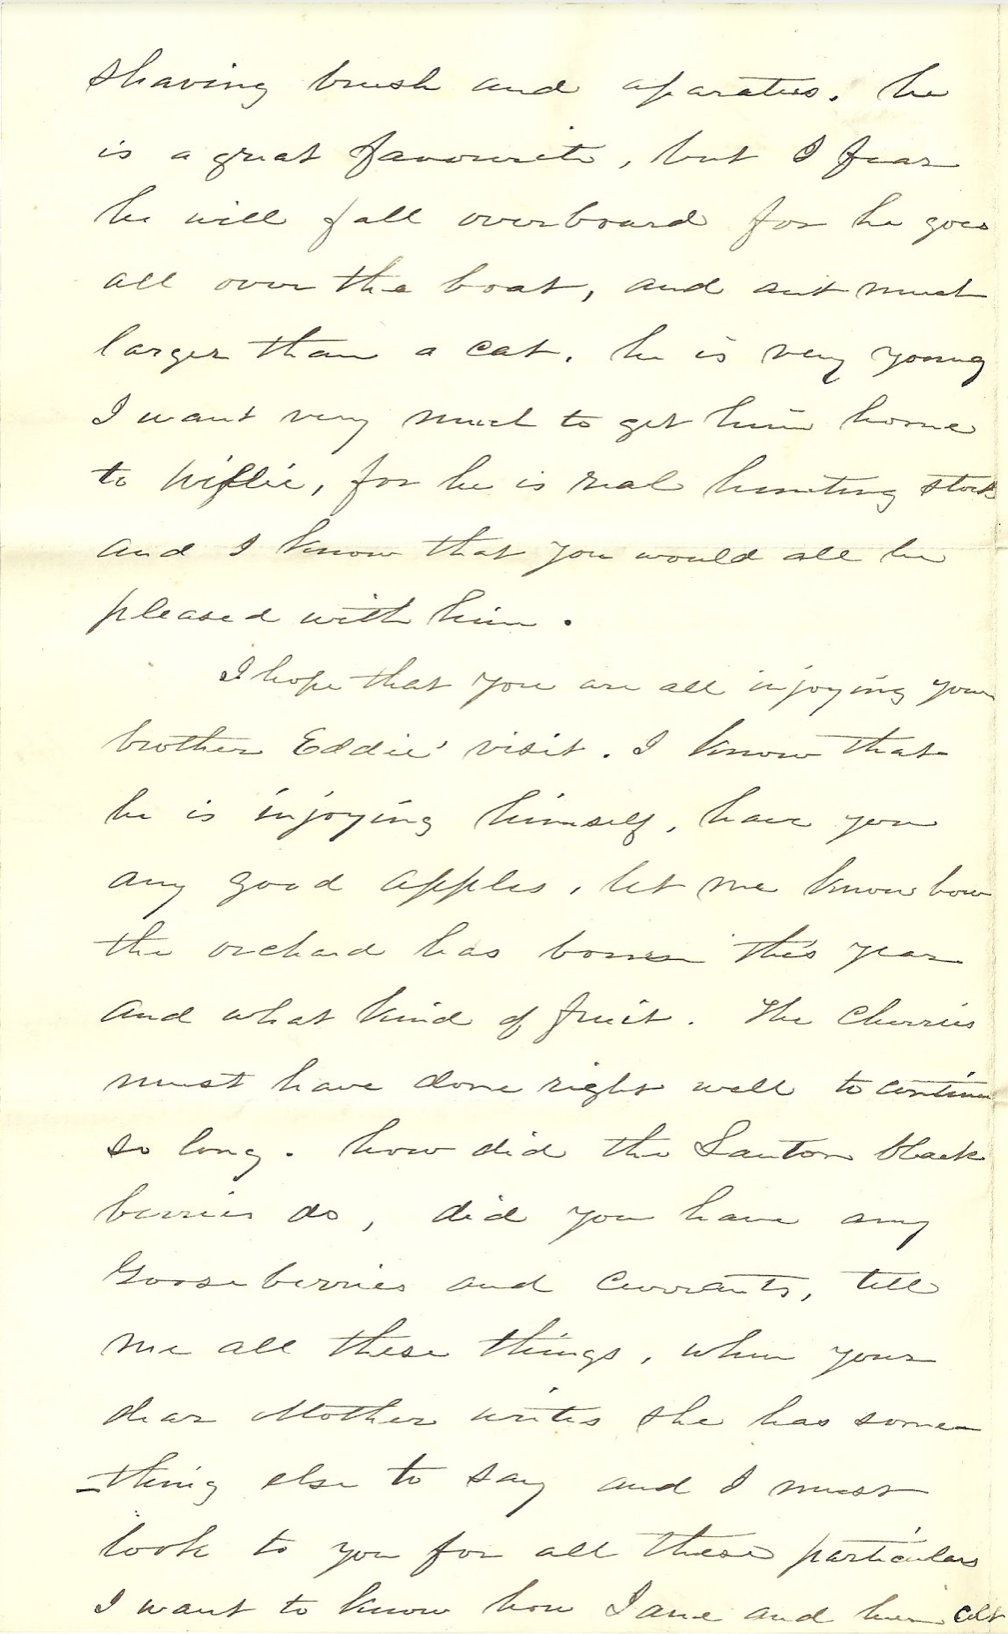 shaving brush and aparatus. he
is a great favourite, but I fear
he will fall overboard for he goes
all over the boat, and aint much
larger than a cat. he is very young
I want very much to get him home
to Willie, for he is real hunting stock
and I know that you would all be
pleased with him.
I hope that you are all injoying your
brother Eddie' visit. I know that
he is injoying himself, have you
any good apples, let me know how
the orchard has borne this year
and what kind of fruit. The Cherries
must have done right well to continue
so long. how did the Lauton black
berries do, did you have any
Gooseberries and Currants, tell
me all these things, when your
dear Mother writes she has some-
-thing else to say and I must
look to you for all these particulars
I want to know how Jane and her colt